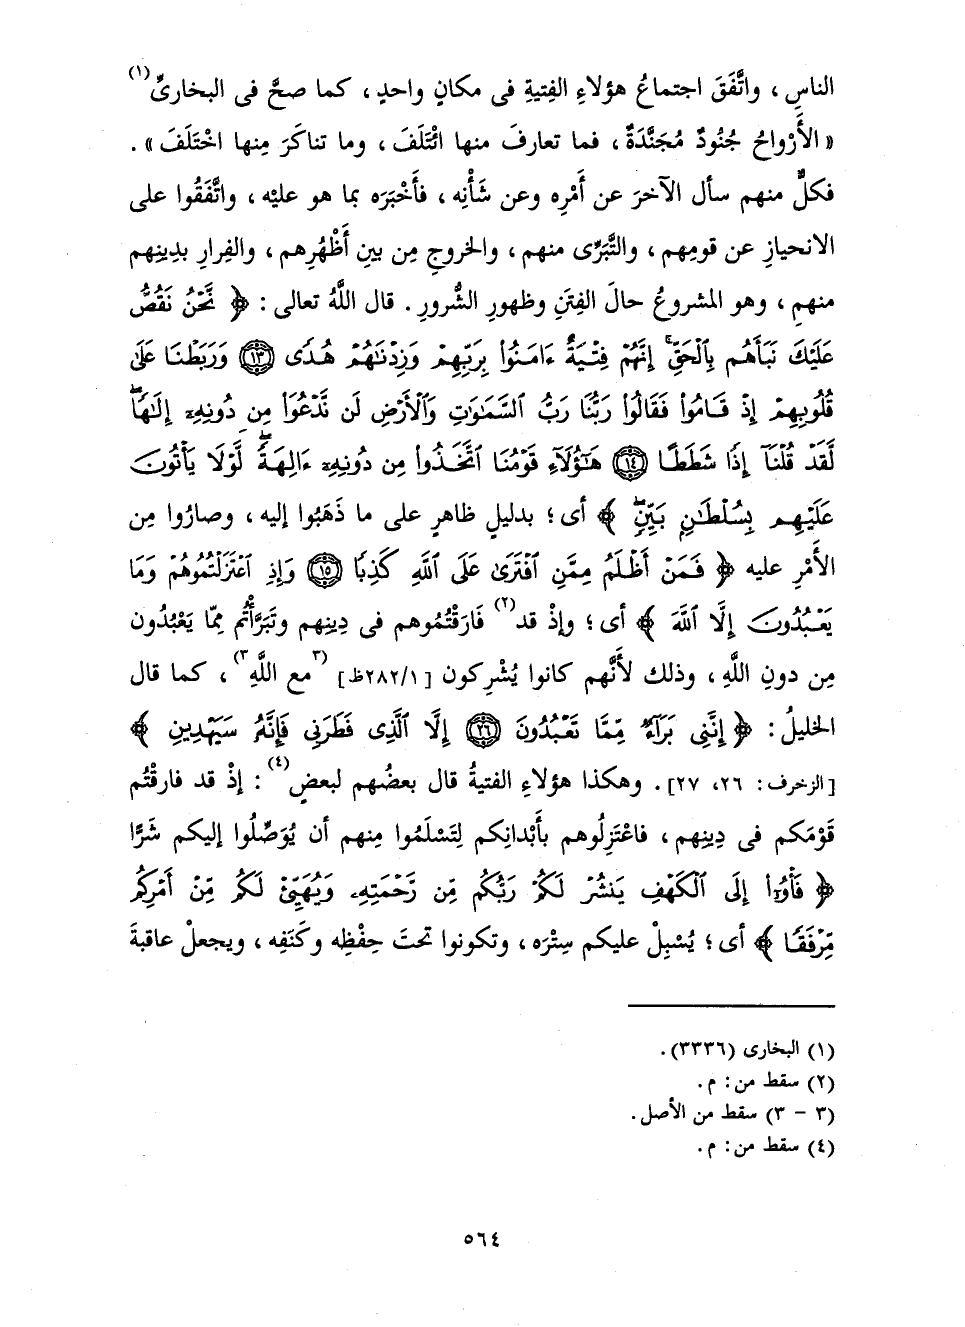 الناسِ ، واتَّفَقَ اجتماعُ هؤلاءِ الفِتيةِ فى مكانٍ واحدٍ ، كما صحَّ فى البخارىِّ(١)
« الأَرْواحُ جُنُودٌ مُجَنَّدَةٌ ، فما تعارفَ منها ائْتَلَفَ ، وما تناكَرَ مِنها اخْتَلَفَ » .
فكلٌّ منهم سأل الآخرَ عن أَمْرِه وعن شَأْنِه ، فأَخْبَرَه بما هو عليْه ، واتَّفَقُوا على
الانحيازِ عن قومِهم ، والتَّبَرِّى منهم ، والخروجِ مِن بينِ أَظْهُرِهم ، والفِرارِ بدِينِهم
منهم ، وهو المشروعُ حالَ الفِتَنِ وظهورِ الشُّرورِ . قال اللَّهُ تعالى : ﴿ نَّحْنُ نَقُصُّ
عَلَيْكَ نَبَأَهُم بِالْحَقِّ ۚ إِنَّهُمْ فِتْيَةٌ ءَامَنُوا۟ بِرَبِّهِمْ وَزِدْنَٰهُمْ هُدًى ﴿١٣﴾ وَرَبَطْنَا عَلَىٰ
قُلُوبِهِمْ إِذْ قَامُوا۟ فَقَالُوا۟ رَبُّنَا رَبُّ ٱلسَّمَٰوَٰتِ وَٱلْأَرْضِ لَن نَّدْعُوَا۟ مِن دُونِهِۦٓ إِلَٰهًا ۖ
لَّقَدْ قُلْنَآ إِذًا شَطَطًا ﴿١٤﴾ هَٰٓؤُلَآءِ قَوْمُنَا ٱتَّخَذُوا۟ مِن دُونِهِۦٓ ءَالِهَةً ۖ لَّوْلَا يَأْتُونَ
عَلَيْهِم بِسُلْطَٰنٍۭ بَيِّنٍ ۖ ﴾ أى ؛ بدليلٍ ظاهرٍ على ما ذَهَبُوا إليه ، وصارُوا مِن
الأَمْرِ عليه ﴿ فَمَنْ أَظْلَمُ مِمَّنِ ٱفْتَرَىٰ عَلَى ٱللَّهِ كَذِبًا ﴿١٥﴾ وَإِذِ ٱعْتَزَلْتُمُوهُمْ وَمَا
يَعْبُدُونَ إِلَّا ٱللَّهَ ﴾ أى ؛ وإذْ قد(٢) فَارَقْتُمُوهم فى دِينِهم وتَبَرَّأْتُم مِمّا يَعْبُدُون
مِن دونِ اللَّهِ ، وذلك لأَنَّهم كانوا يُشْرِكون [ ٢٨٢/١ظ ] (٣مع اللَّهِ٣) ، كما قال
الخليلُ : ﴿ إِنَّنِى بَرَآءٌ مِّمَّا تَعْبُدُونَ ﴿٢٦﴾ إِلَّا ٱلَّذِى فَطَرَنِى فَإِنَّهُۥ سَيَهْدِينِ ﴾
[ الزخرف : ٢٦، ٢٧ ] . وهكذا هؤلاءِ الفتيةُ قال بعضُهم لبعضٍ(٤) : إذْ قد فارقْتُم
قَوْمَكم فى دِينِهم ، فاعْتَزِلُوهم بأَبْدانِكم لِتَسْلَمُوا مِنهم أن يُوَصِّلُوا إليكم شَرًّا
﴿ فَأْوُۥٓا۟ إِلَى ٱلْكَهْفِ يَنشُرْ لَكُمْ رَبُّكُم مِّن رَّحْمَتِهِۦ وَيُهَيِّئْ لَكُم مِّنْ أَمْرِكُم
مِّرْفَقًا ﴾ أى ؛ يُسْبِلْ عليكم سِتْرَه ، وتكونوا تحتَ حِفْظِه وكَنَفِه ، ويجعلْ عاقبةَ
(١) البخارى (٣٣٣٦) .
(٢) سقط من : م .
(٣ - ٣) سقط من الأصل .
(٤) سقط من : م .
٥٦٤